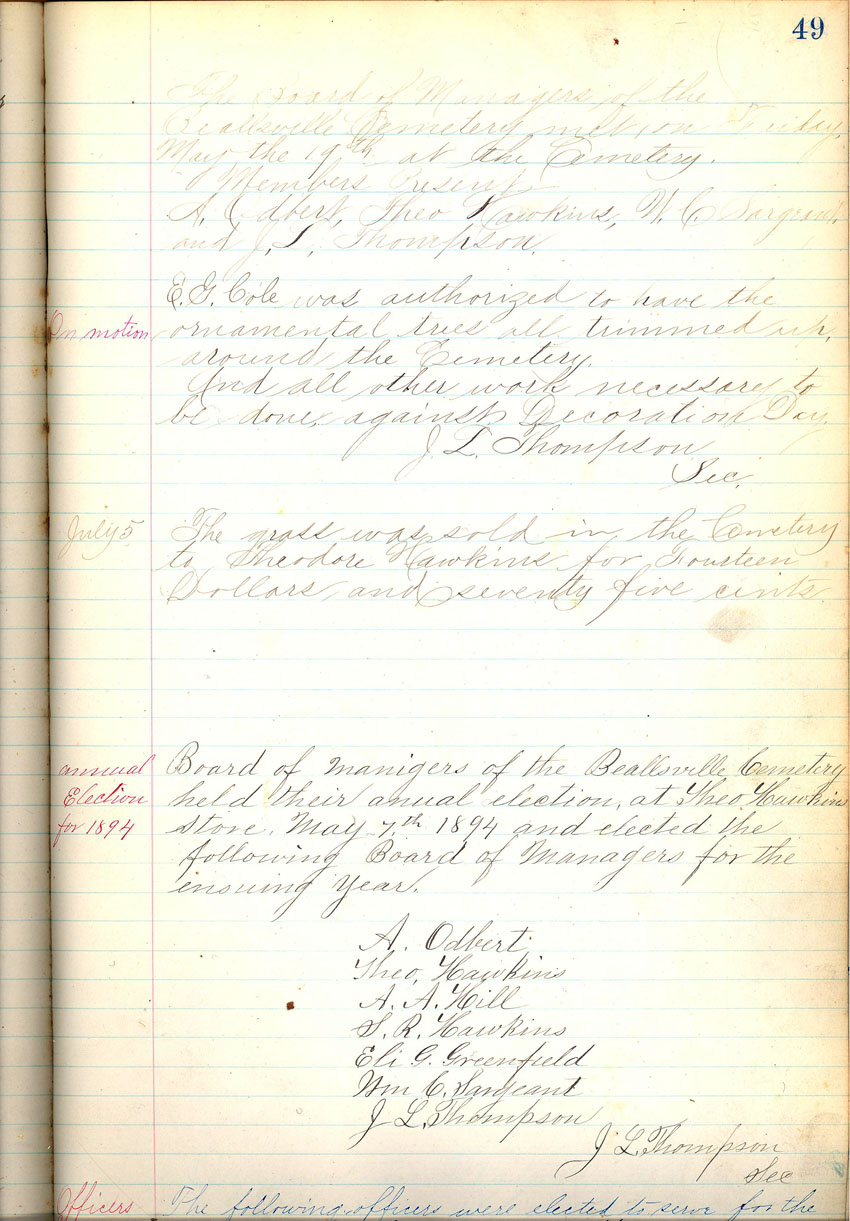 49
The Board of Managers of the
Beallsville Cemetery met, on Friday,
May the 19th at the Cemetery.
Members Present
A. Odbert, Theo Hawkins, W. C. Sargeant,
and J. L. Thompson.
E. G. Cole was authorized to have the
On motion ornamental trees all trimmed up,
around the Cemetery.
And all other work necessary to
be done, against Decoration Day.
J. L. Thompson
Sec.
July 5 The grass was sold in the Cemetery
to Theodore Hawkins for Fourteen
Dollars, and seventy five cents.
annual Board of Manigers of the Beallsville Cemetery
Election held their anual election, at Theo, Hawkins
for 1894 store. May 7th 1894 and elected the
following Board of Managers for the
ensuing Year.
A. Odbert
Theo, Hawkins
A. A. Hill
S. R. Hawkins
Eli G. Greenfield
Wm C. Sargeant
J L. Thompson
J L. Thompson
Sec
Officers The following officers were elected to serve for the